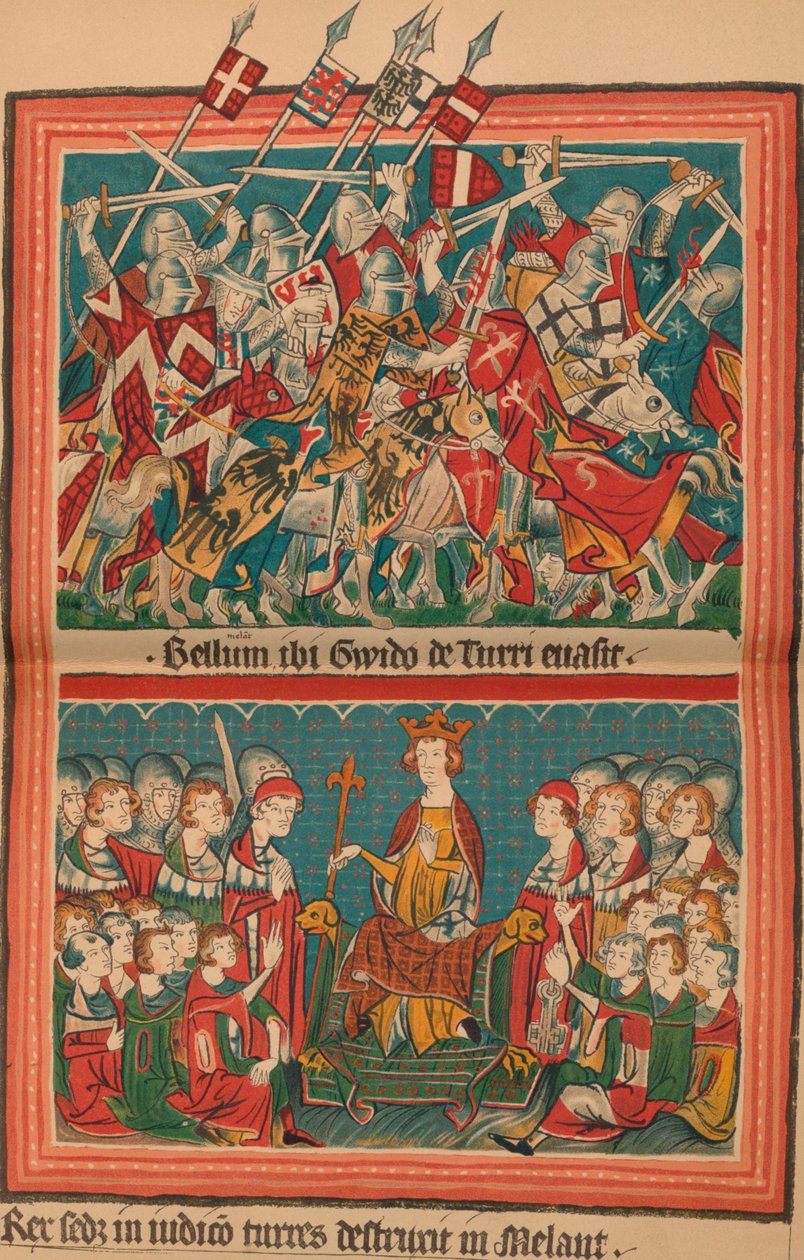 melāt
· Bellum ibi Gwido de Turri euasit ·
Rex sedz in iudicō turres destruxit in Melant ·